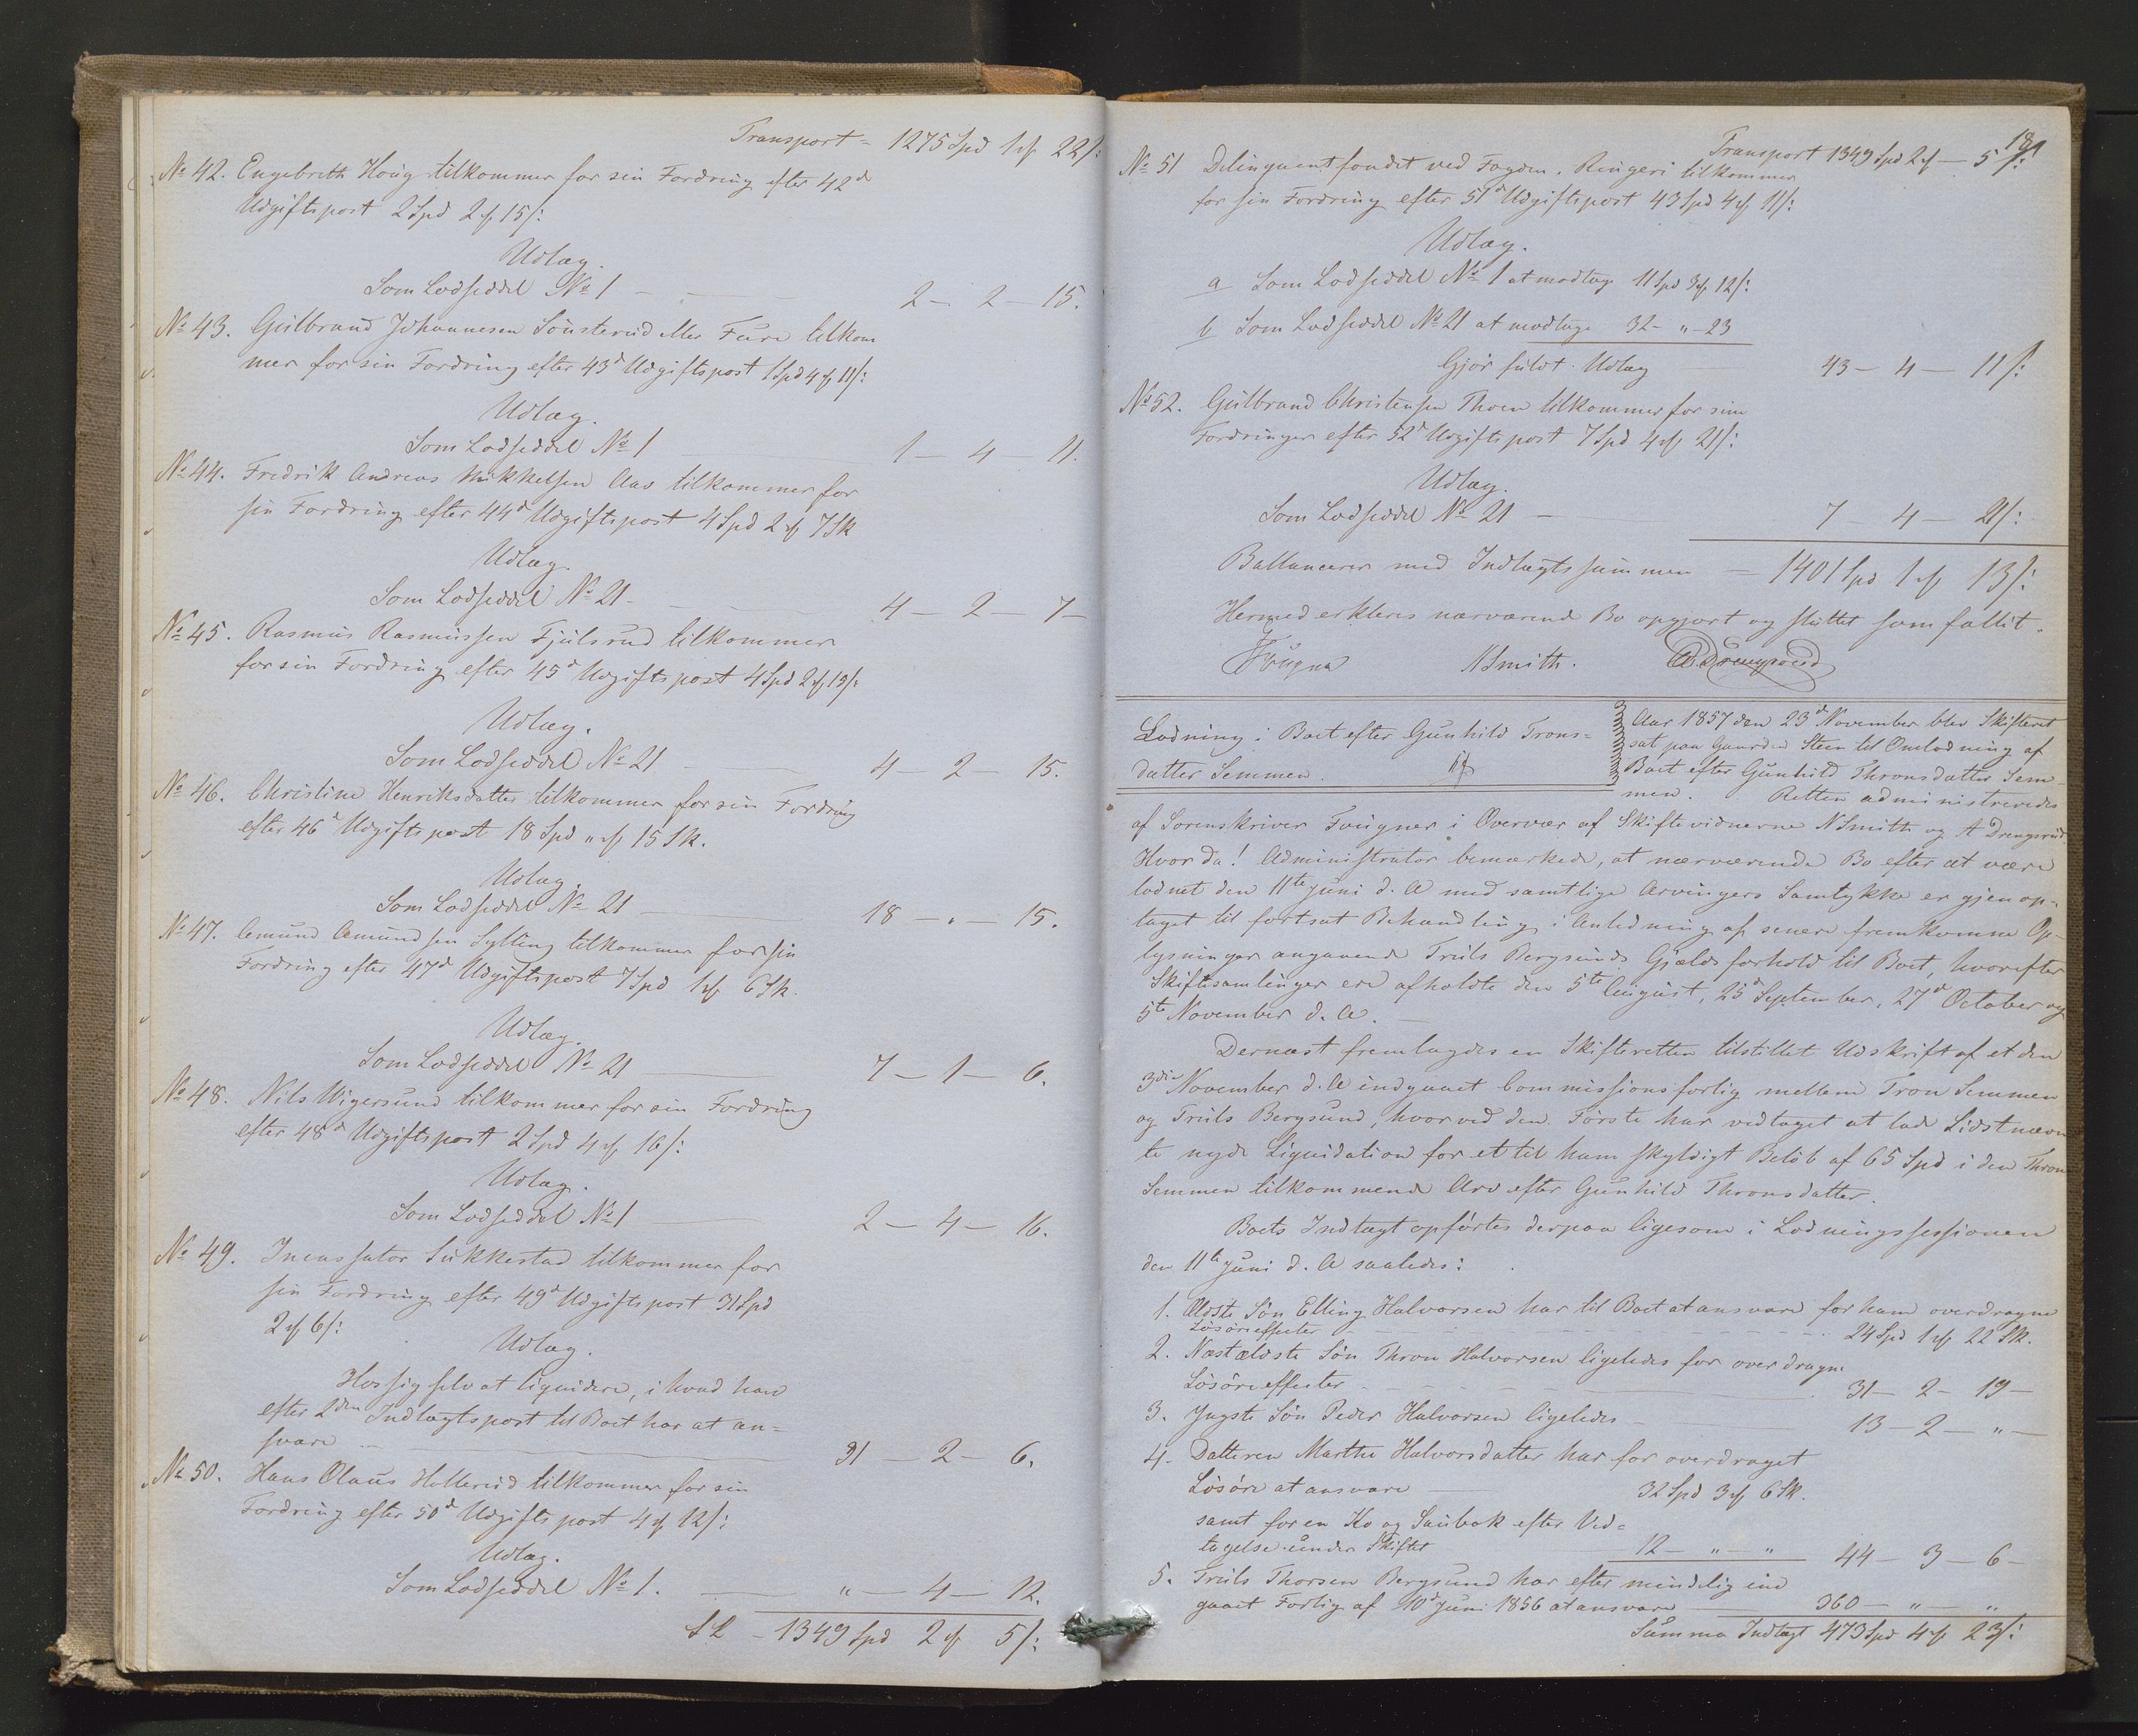 Transport = 1275 Spd 1 ₰ 22 s:
No 42. Engebreth Houg tilkommer for sin Fordring efter 42d
Udgiftspost 2 Spd 2 ₰ 15 s:
Udlæg.
Som Lodseddel No 1 — 2 — 2 — 15.
No 43. Gulbrand Johannesen Sønsterud eller Fure tilkom
mer for sin Fordring efter 43d Udgiftspost 1 Spd 4 ₰ 11 s:
Udlæg.
Som Lodseddel No 1 — 1 — 4 — 11.
No 44. Fredrik Andreas Mikkelsen Aas tilkommer for
sin Fordring efter 44d Udgiftspost 4 Spd 2 ₰ 7 Sk
Udlæg.
Som Lodseddel No 21 — 4 — 2 — 7 —
No 45. Rasmus Rasmussen Fjulsrud tilkommer
for sin Fordring efter 45d Udgiftspost 4 Spd 2 ₰ 15 s:
Udlæg.
Som Lodseddel No 21 — 4 — 2 — 15.
No 46. Christine Henriksdatter tilkommer for sin Fordring
efter 46d Udgiftspost 18 Spd „ ₰ 15 Sk.
Udlæg.
Som Lodseddel No 21 — 18 — „ — 15.
No 47. Amund Amundsen Sylling tilkommer for sin
Fordring efter 47d Udgiftspost 7 Spd 1 ₰ 6 Sk.
Udlæg.
Som Lodseddel No 21 — 7 — 1 — 6.
No 48. Nils Wigersund tilkommer for sin Fordring
efter 48d Udgiftspost 2 Spd 4 ₰ 16 s:
Udlæg.
Som Lodseddel No 1 — 2 — 4 — 16.
No 49. Incassator Sukkestad tilkommer for
sin Fordring efter 49d Udgiftspost 31 Spd
2 ₰ 6 s:
Udlæg.
Hos sig selv at liquidere, i hvad han
efter 2den Indtægtspost til Boet har at an=
svare — 31 — 2 — 6.
No 50. Hans Olaus Hollerud tilkommer for sin
Fordring efter 50d Udgiftspost 4 ₰ 12 s:
Udlæg.
Som Lodseddel No 1. — „ — 4 — 12.
1349 Spd 2 ₰ 5 s:
181
Transport 1349 Spd 2 ₰ — 5 s:
No 51 Delinquentfondet ved Fogden i Ringeri tilkommer
for sin Fordring efter 51d Udgiftspost 43 Spd 4 ₰ 11 s:
Udlæg.
a Som Lodseddel No 1 at modtage 11 Spd 3 ₰ 12 s:
b Som Lodseddel No 21 at modtage 32 — „ — 23
Gjør fuldt Udlæg — 43 — 4 — 11 s:
No 52. Gulbrand Christensen Thoen tilkommer for sine
Fordringer efter 52d Udgiftspost 7 Spd 4 ₰ 21 s:
Udlæg.
Som Lodseddel No 21 — 7 — 4 — 21 s:
Ballancerer med Indtægtssummen — 1401 Spd 1 ₰ 13 s:
Hermed erklæres nærværende Bo opgjort og sluttet som fallit.
Fougner N Smith. A Drengsrud
Lodning i Boet efter Gunhild Trons=
datter Semmen.
Aar 1857 den 23d November blev Skifteret
sat paa Gaarden Steen til Omlodning af
Boet efter Gunhild Thronsdatter Sem-
men. Retten administreredes
af Sorenskriver Fougner i Overvær af Skiftevidnerne N Smith og A Drengsrud.
Hvor da! Administrator bemærkede, at nærværende Bo efter at være
lodnet den 11te Juni d. A med samtlige Arvingers Samtykke er gjenop-
taget til fortsat Behandling i Anledning af senere fremkomne Op-
lysninger angaaende Truls Bergsunds Gjeldsforhold til Boet, hvorefter
Skiftesamlinger ere afholdte den 5te August, 25d September, 27d October og
5te November d. A. —
Dernæst fremlagdes en Skifteretten tilstillet Udskrift af et den
3die November d. A indgaaet Commissionsforlig mellem Tron Semmen
og Truls Bergsund, hvorved den Første har vedtaget at lade Sidstnævn
te nyde Liquidation for et til ham skyldigt Beløb af 65 Spd i den Thron
Semmen tilkommende Arv efter Gunhild Thronsdatter.
Boets Indtægt opførtes derpaa ligesom i Lodningssessionen
den 11te Juni d. A saaledes:
1. Ældste Søn Elling Halvorsen har til Boet at ansvare for ham overdragne
Løsøreeffecter — 24 Spd 1 ₰ 22 Sk.
2. Næstældste Søn Thron Halvorsen ligeledes for overdragne
Løsøreeffecter — 31 — 2 — 19 —
3. Yngste Søn Peder Halvorsen ligeledes — 13 — 2 — „ —
4. Datteren Marthe Halvorsdatter har for overdraget
Løsøre at ansvare — 32 Spd 3 ₰ 6 Sk.
samt for en Ko og Saubak efter Ved=
tagelse under Skiftet 12 — „ — „ 44 — 3 — 6 —
5. Truls Thorsen Bergsund har efter mindelig ind
gaaet Forlig af 10d Juni 1856 at ansvare — 360 — „ — „
Summa Indtægt 473 Spd 4 ₰ 23 s: